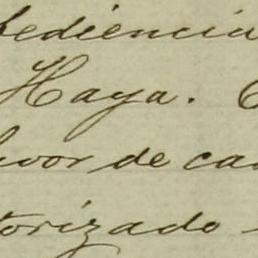 bediencia
Haya.
avor de ca
torizado